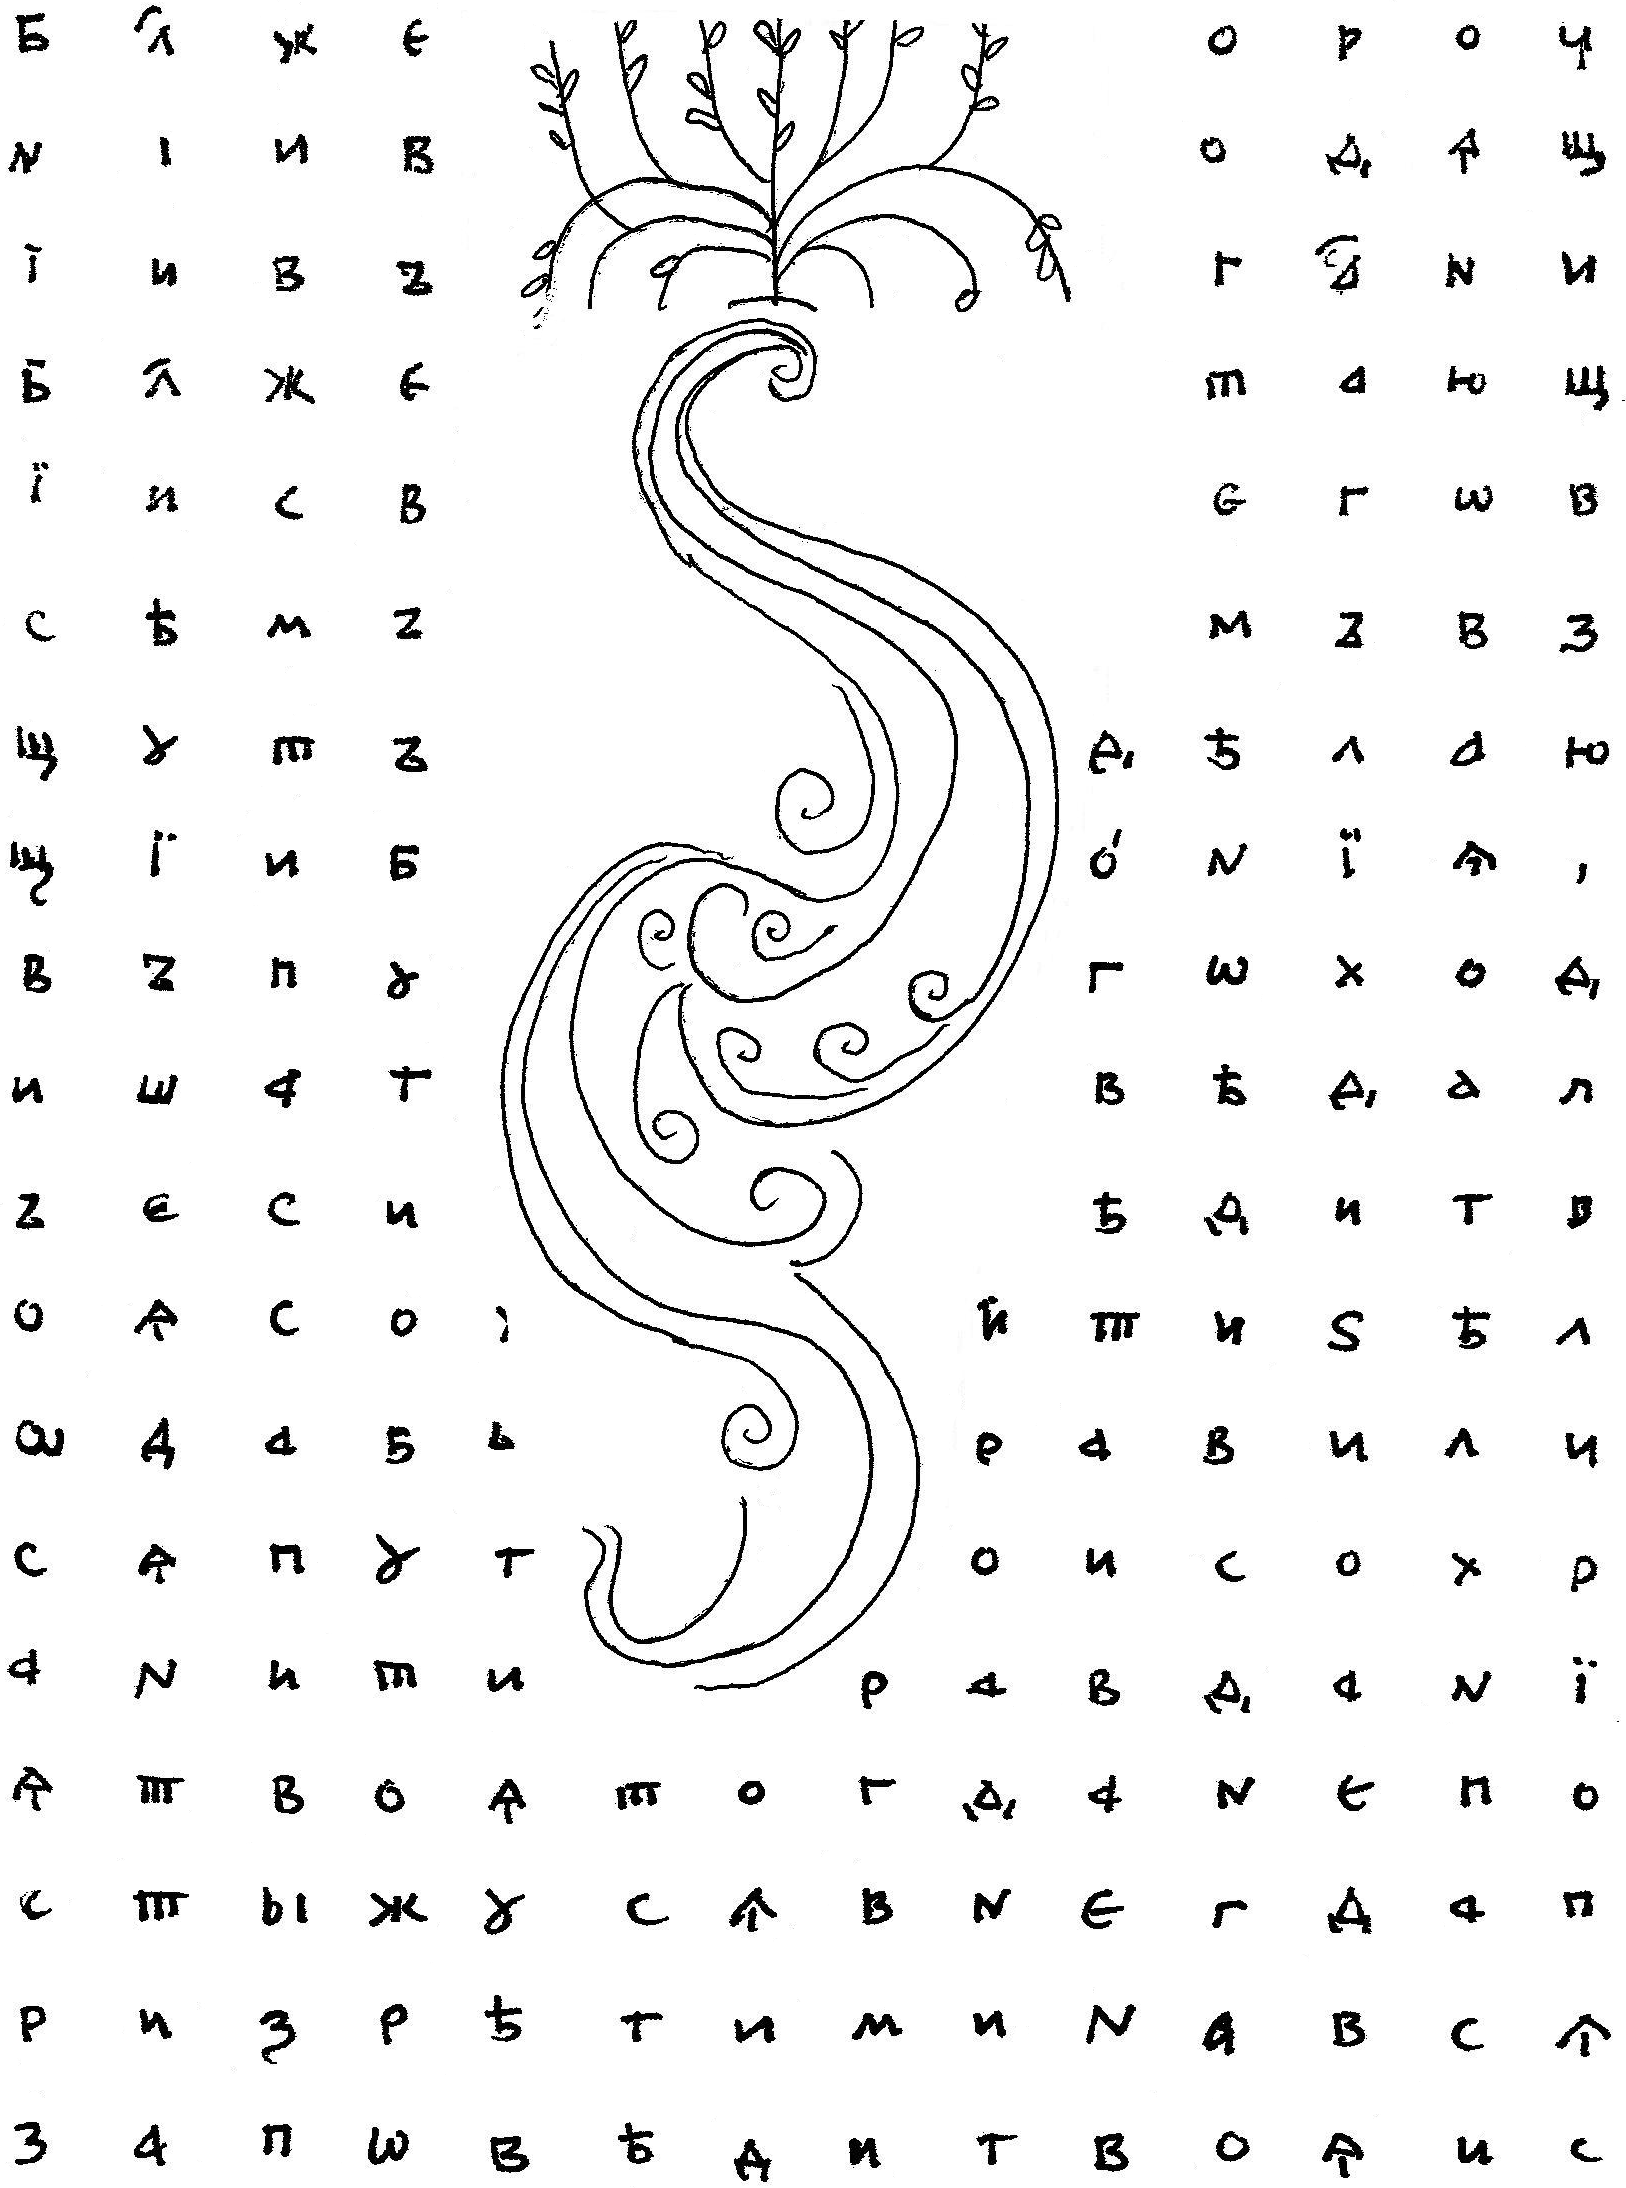 Б Л҃ Ж Є О Р О Ч
Н І И В О Д Ѧ Щ
Ї И В Ъ Г Д҃ Н И
Б Л҃ Ж Є Т А Ю Щ
Ї И С В Є Г Ѡ В
С Ѣ М Ъ М Ъ В З
Щ Ꙋ Т Ъ Д Ѣ Л А Ю
Щ Ї И Б О́ Н Ї Ѧ ,
В Ъ П Ꙋ Г Ѡ Х О Д
И Ш А Т В Ѣ Д А Л
Ъ Є С И Ѣ Д И Т В
О Ѧ С О Й Т И Ѕ Ѣ Л
Ѽ Д А Б Ь Р А В И Л И
С Ѧ П Ꙋ Т О И С О Х Р
А Н И Т И Р А В Д А Н Ї
Ѧ Т В О Ѧ Т О Г Д А Н Є П О
С Т Ы Ж Ꙋ С Ѧ В Н Є Г Д А П
Р И З Р Ѣ Т И М И Н А В С Ѧ
З А П Ѡ В Ѣ Д И Т В О Ѧ И С